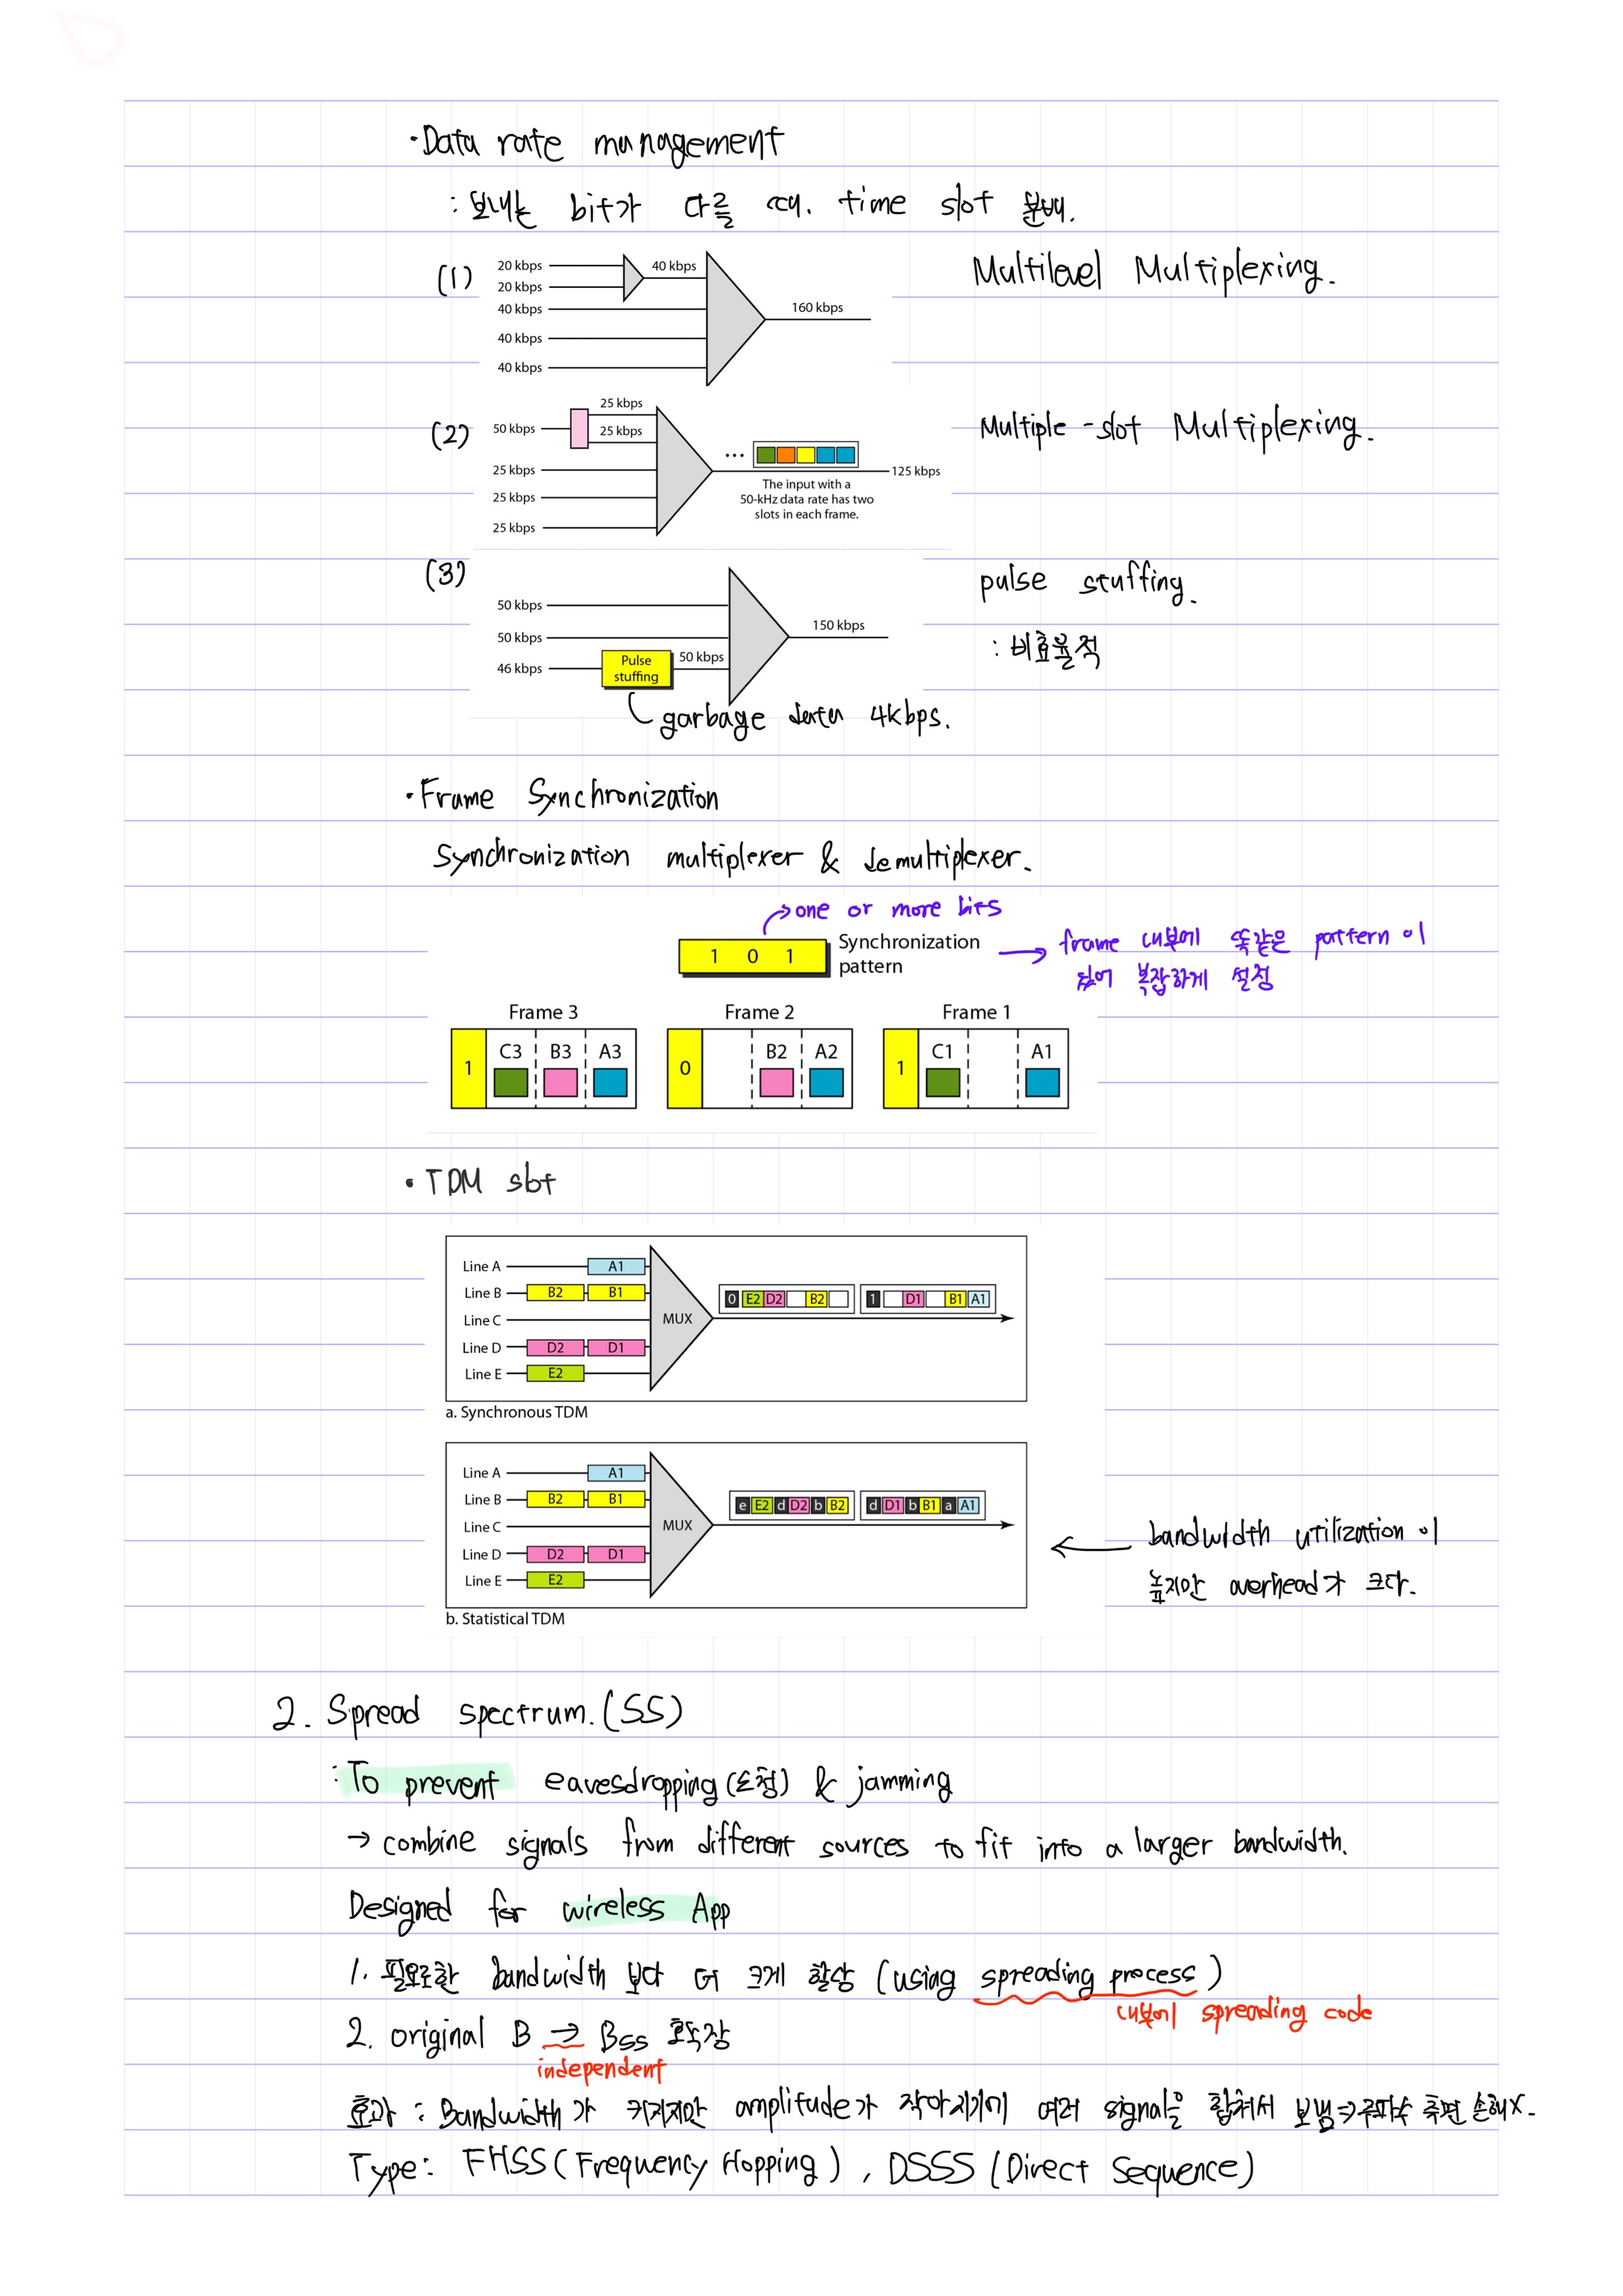 ·Data rate management
: 보내는 bit가 다를 때. time slot 분배.
(1)
20 kbps
20 kbps
40 kbps
40 kbps
40 kbps
40 kbps
160 kbps
Multilevel Multiplexing.
(2)
50 kbps
25 kbps
25 kbps
25 kbps
25 kbps
25 kbps
...
125 kbps
The input with a
50-kHz data rate has two
slots in each frame.
Multiple-slot Multiplexing.
(3)
50 kbps
50 kbps
46 kbps
Pulse
stuffing
50 kbps
150 kbps
pulse stuffing.
: 비효율적
garbage data 4kbps.
·Frame Synchronization
Synchronization multiplexer & demultiplexer.
→one or more bits
1 0 1
Synchronization
pattern
→ frame 내부에 똑같은 pattern이
있어 복잡하게 설정
Frame 3 Frame 2 Frame 1
1 C3 B3 A3
0 B2 A2
1 C1 A1
·TDM slot
Line A A1
Line B B2 B1
Line C
Line D D2 D1
Line E E2
MUX
0 E2 D2 B2
1 D1 B1 A1
a. Synchronous TDM
Line A A1
Line B B2 B1
Line C
Line D D2 D1
Line E E2
MUX
e E2 d D2 b B2
d D1 b B1 a A1
b. Statistical TDM
← bandwidth utilization이
높지만 overhead가 크다.
2. Spread spectrum.(SS)
:To prevent eavesdropping(도청) & jamming
→ combine signals from different sources to fit into a larger bandwidth.
Designed for wireless App
1. 필요로한 bandwidth 보다 더 크게 할당 (using spreading process)
내부에 spreading code
2. original B ⇒ Bss 확장
independent
효과 : Bandwidth가 커지지만 amplitude가 작아지기에 여러 signal을 합쳐서 보냄⇒주파수 측면 손해x.
Type: FHSS(Frequency Hopping), DSSS (Direct Sequence)